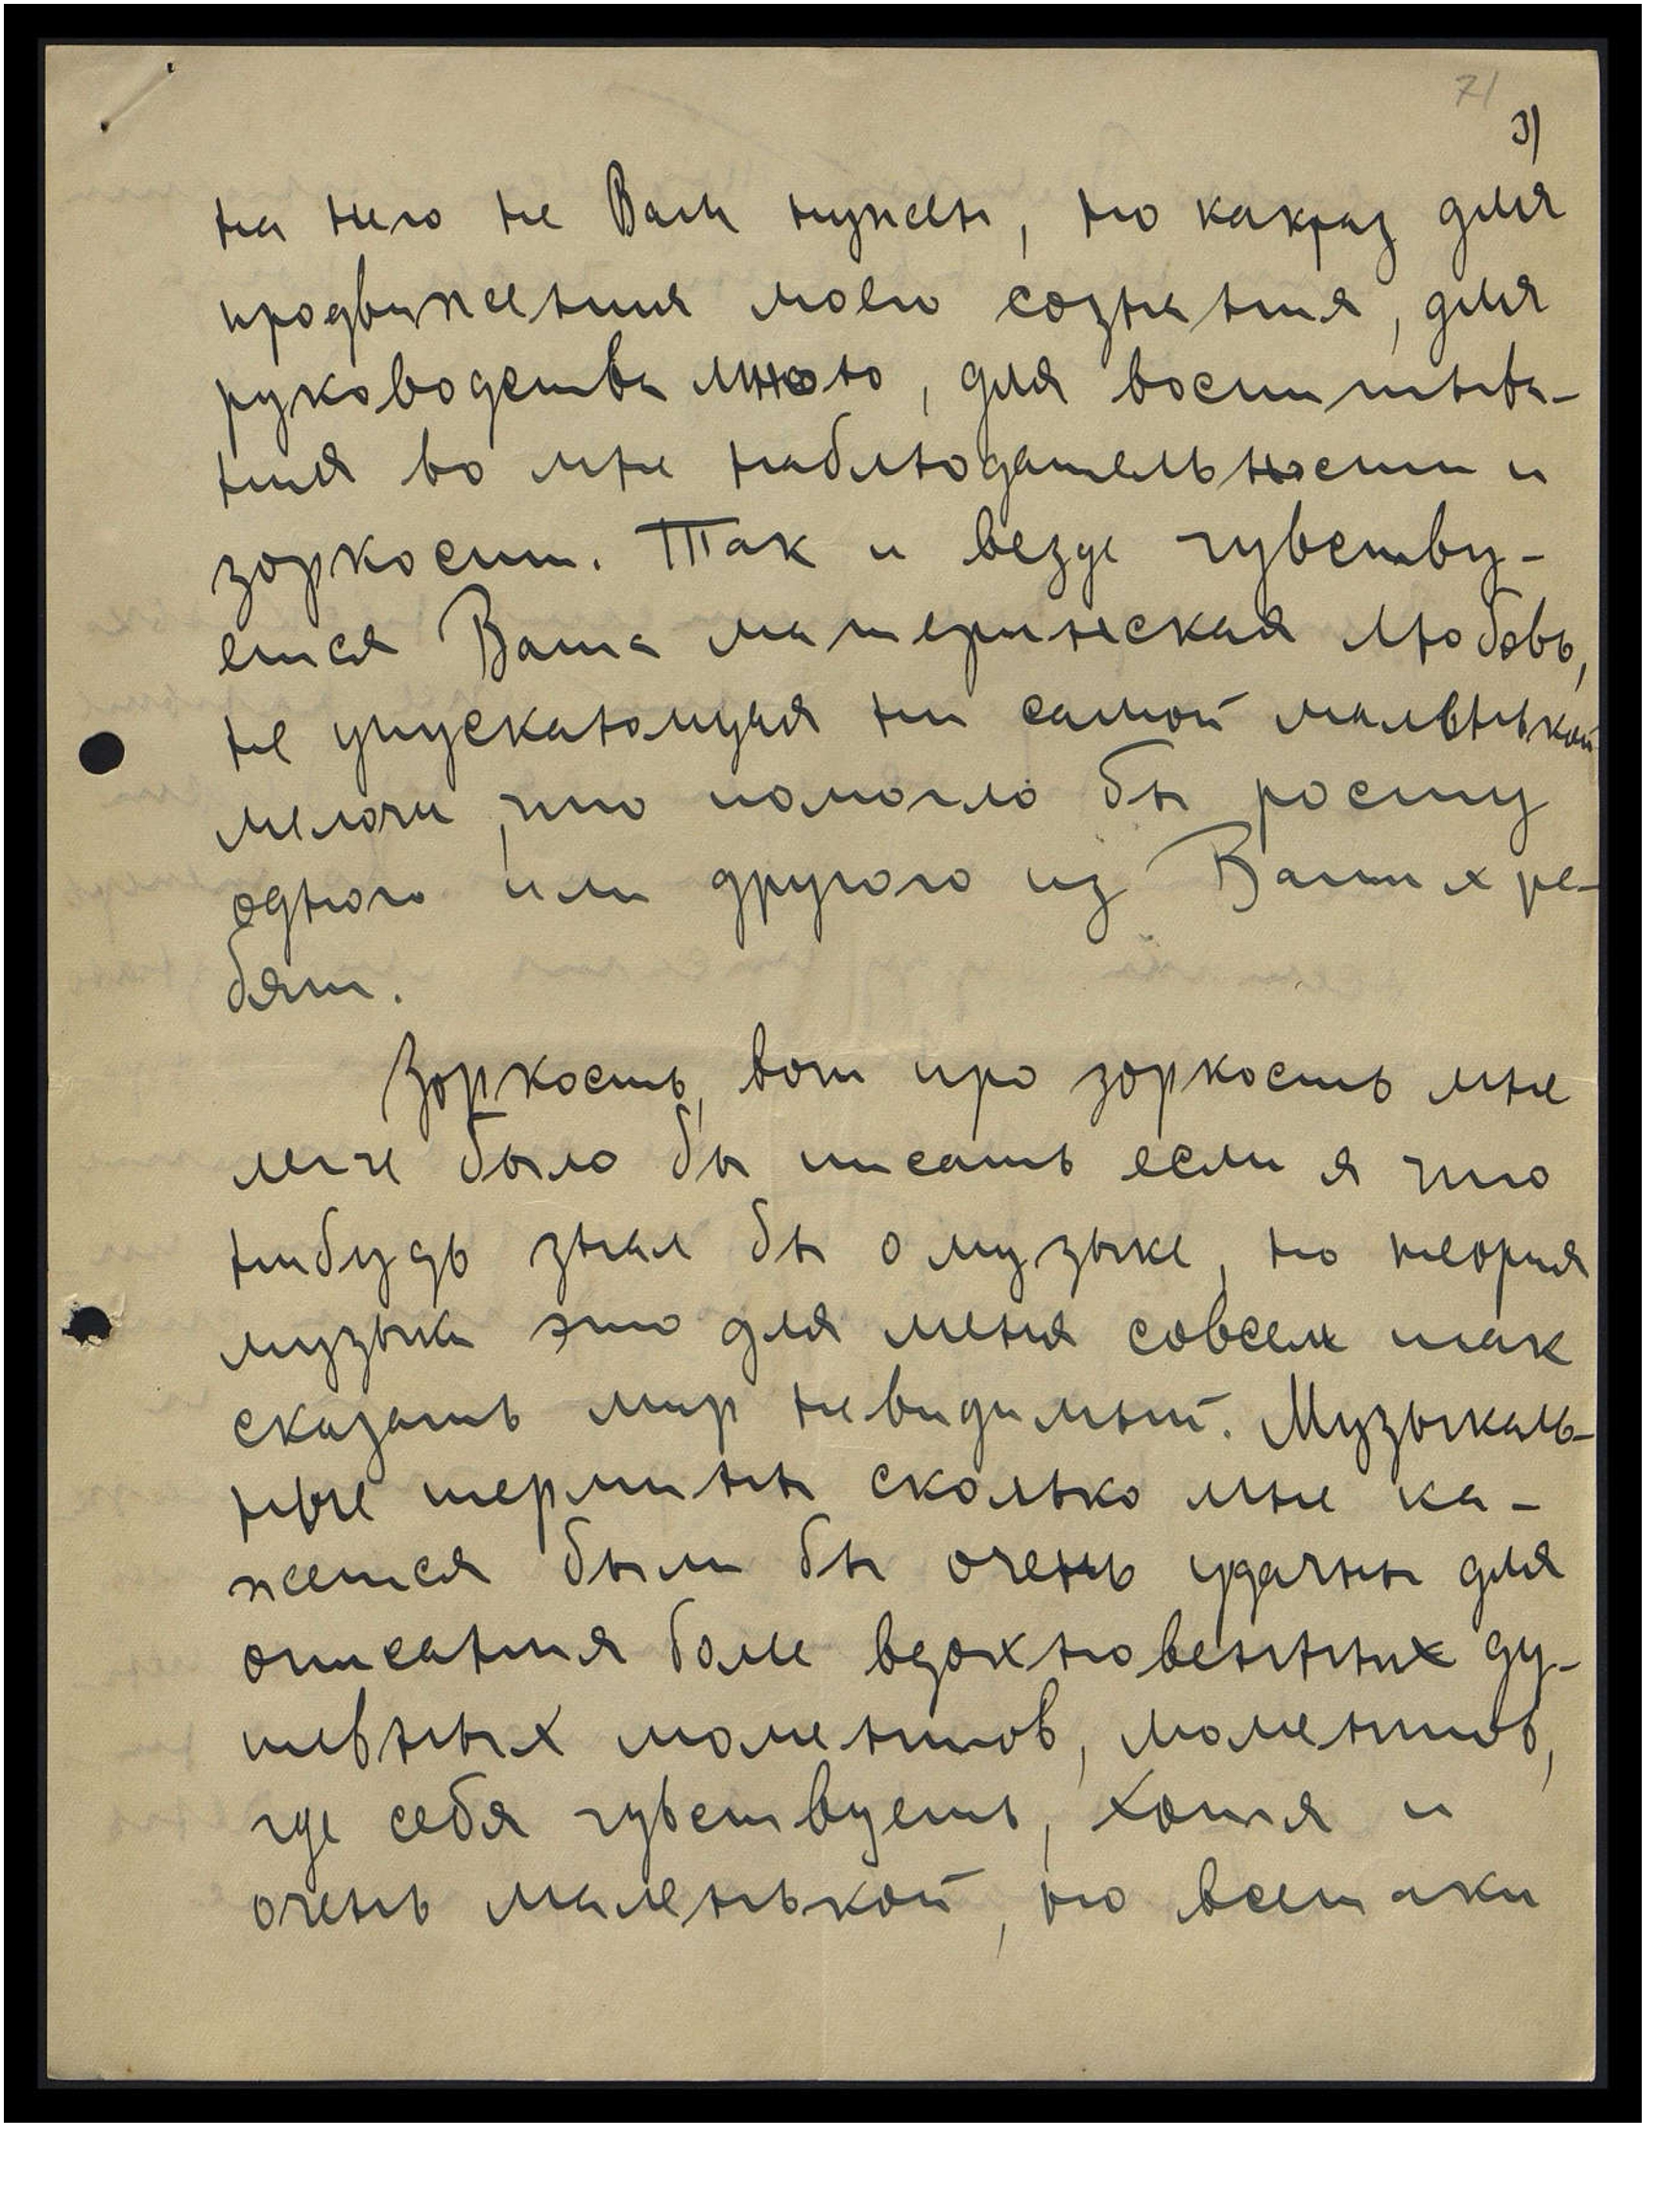 71
3)
на него не Вам нужен, но какраз для
продвижения моего сознания, для
руководства мною, для воспитыва-
ния во мне наблюдательности и
зоркости. Так и везде чувству-
ется Ваша материнская любовь,
не упускающая ни самой маленькой
мелочи, что помогло бы росту
одного или другого из Ваших ре-
бят.
Зоркость, вот про зоркость мне
легче было бы писать если я что
нибудь знал бы о музыке, но теория
музыки это для меня совсем так
сказать мир невидимый. Музыкаль-
ные термины сколько мне ка-
жется были бы очень удачны для
описания более вдохновенных ду-
шевных моментов, моментов,
где себя чувствуешь, хотя и
очень маленькой, но всетаки